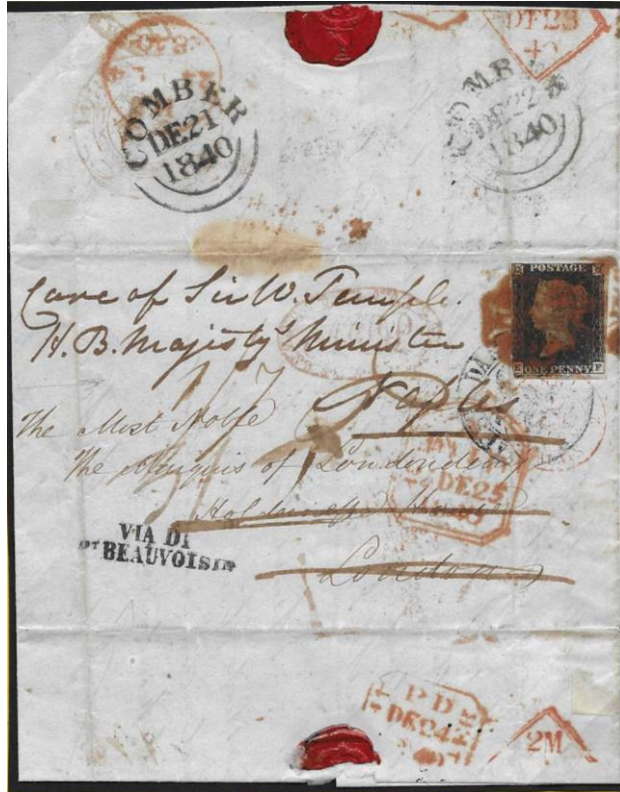 DE 23
COMBER
DE 21
1840
COMBER
DE 22
1840
POSTAGE
ONE PENNY
Care of Sir W. Temple.
H. B. Majesty's Minister
Naples
The Most Noble
The Marquis of Londonderry
Holdernesse House
London
DE 25
VIA DI
PT BEAUVOISIN
PD
DE 24
2M